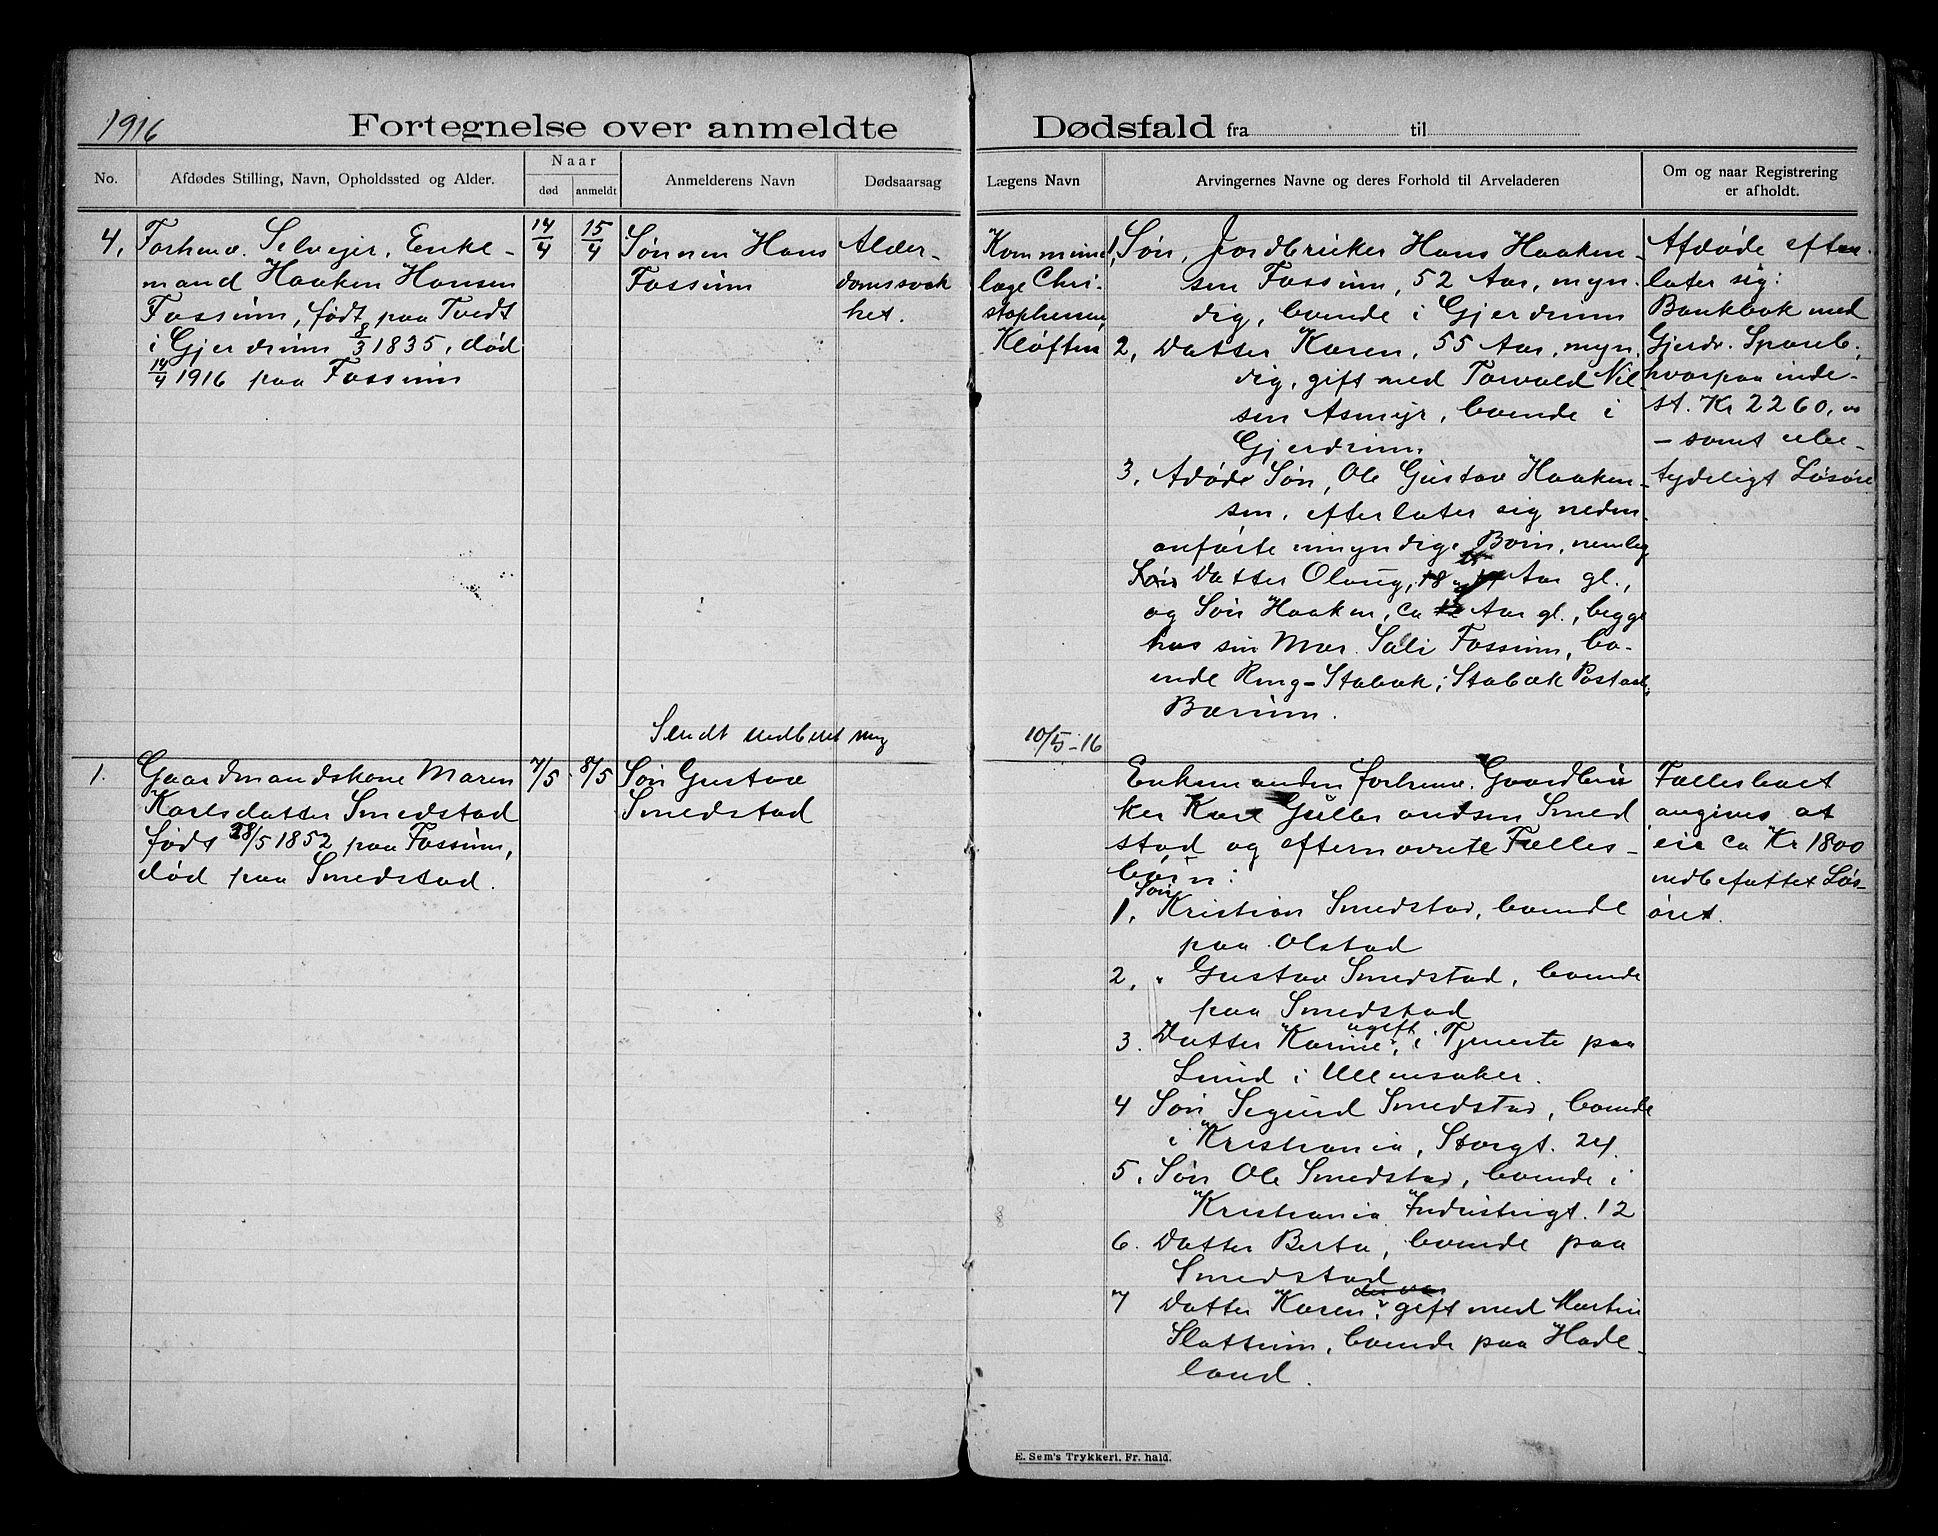 1916
Fortegnelse over anmeldte Dødsfald fra til
No.
Afdødes Stilling, Navn, Opholdssted og Alder.
Naar
død
anmeldt
Anmelderens Navn
Dødsaarsag
Lægens Navn
Arvingernes Navne og deres Forhold til Arveladeren
Om og naar Registrering
er afholdt.
4.
Forhenv. Selvejer, Enke-
mand Haaken Hansen
Fossum, født paa Tvedt
i Gjerdrum 8/3 1835, død
14/4 1916 paa Fossum
14/4
15/4
Sønnen Hans
Fossum
Alder-
domssvak
het.
Kommune
læge Chri-
stophersen,
Kløften
1, Søn, Jordbruker Hans Haaken-
sen Fossum, 52 Aar, myn-
dig, boende i Gjerdrum
2, Datter Karen, 55 Aar, myn-
dig, gift med Torvald Nil-
sen Asmyr, boende i
Gjerdrum.
3, Adøde Søn, Ole Gustav Haaken-
sen, efterlater sig neden-
anførte umyndige Børn, nemlig
Søn Datter Olaug, 18 Aar gl.,
og Søn Haaken, ca 12 Aar gl., begge
hos sin Mor Sali Fossum, bo-
ende Ring-Stabæk, Stabæk Postaab.
Bærum.
Afdøde efter-
later sig:
Bankbok med
Gjerdr. Spareb.,
hvorpaa inde-
st. Kr 2260,00
- samt ube-
tydeligt Løsøre
Sendt 10/5-16
1.
Gaardmandskone Maren
Karlsdatter Smedstad
født 28/5 1852 paa Fossum,
død paa Smedstad.
7/5
8/5
Søn Gustav
Smedstad
Enkemanden forhenv. Gaardbru
ker Karl Gulbrandsen Smed
stad og efternævnte Fælles-
børn:
1, Søn Kristian Smedstad, boende
paa Olstad
2, " Gustav Smedstad, boende
paa Smedstad
3. Datter Karine, ugift, i Tjeneste paa
Lund i Ullensaker.
4 Søn Segurd Smedstad, boende
i Kristiania, Storgt. 24.
5, Søn Ole Smedstad, boende i
Kristiania Industrigt. 12
6. Datter Berta, boende paa
Smedstad
7 Datter Karen, gift med Martin
Slattum, boende paa Hade-
land.
Fællesboet
angives at
eie ca Kr 1800
indbefattet Løs-
øret.
E. Sem's Trykkeri, Fr. hald.